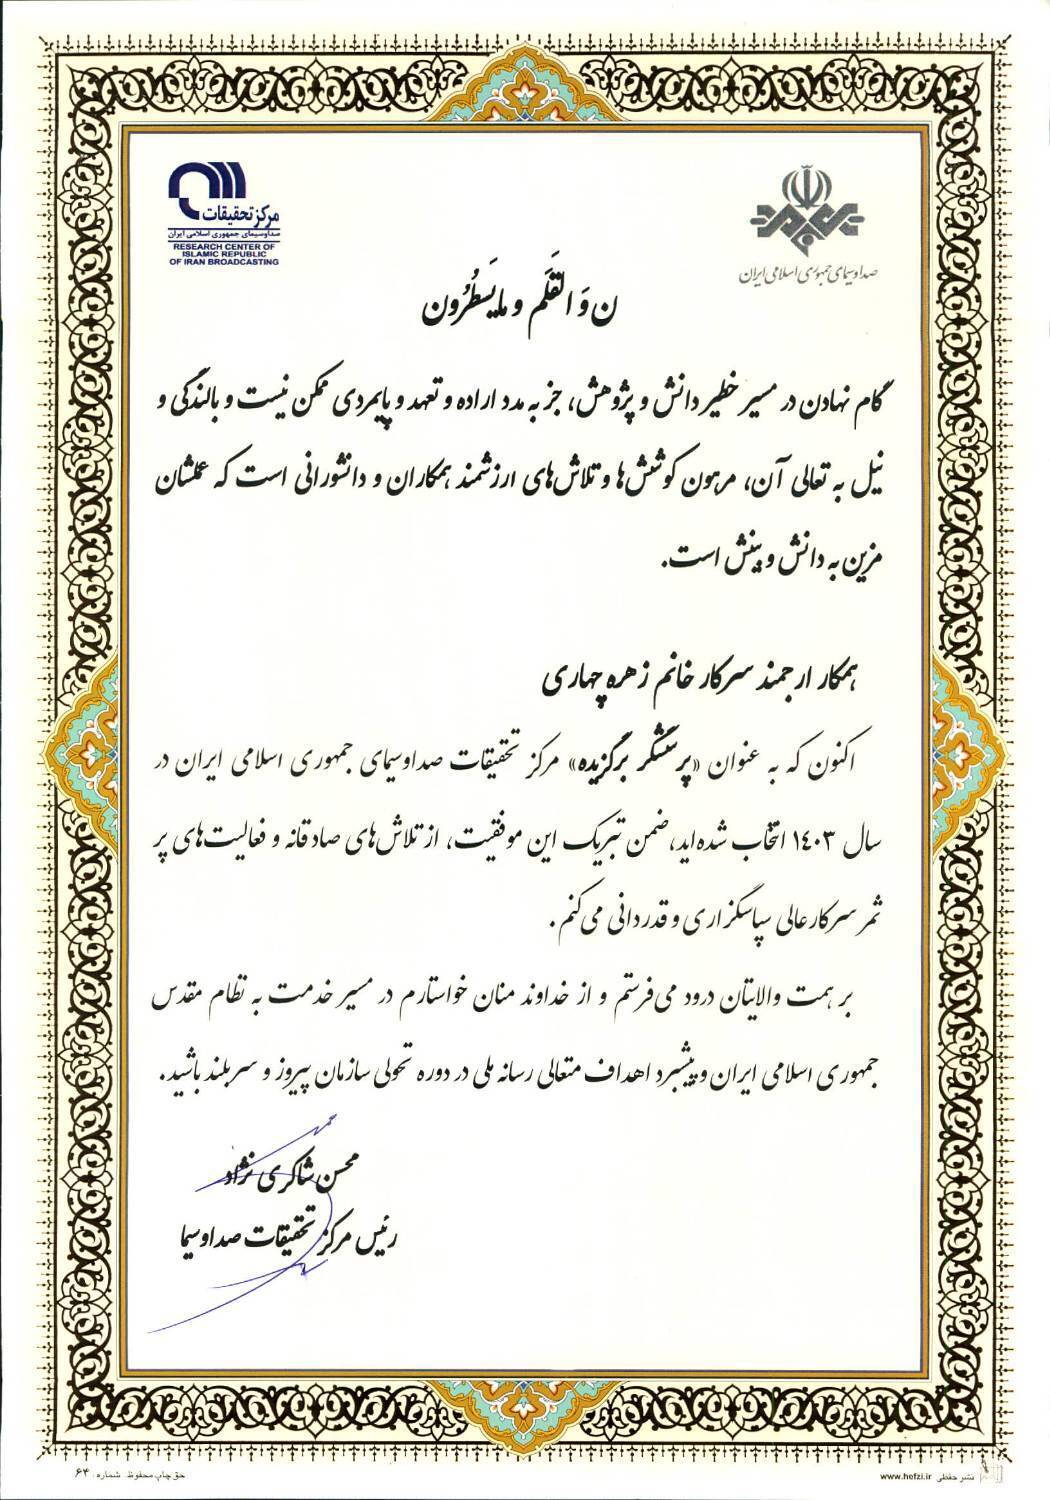 مرکز تحقیقات
صداوسیمای جمهوری اسلامی ایران
RESEARCH CENTER OF
ISLAMIC REPUBLIC
OF IRAN BROADCASTING
صداوسیمای جمهوری اسلامی ایران
ن وَ الْقَلَم و مایَسطُرُون
گام نهادن در مسیر خطیر دانش و پژوهش، جز به مدد اراده و تعهد و پایمردی ممکن نیست و بالندگی و
نیل به تعالی آن، مرهون کوشش‌ها و تلاش‌های ارزشمند همکاران و دانشورانی است که عملشان
مزین به دانش و بینش است.
همکار ارجمند سرکار خانم زهره چهاری
اکنون که به عنوان «پرسشگر برگزیده» مرکز تحقیقات صداوسیمای جمهوری اسلامی ایران در
سال ۱٤۰۳ انتخاب شده‌اید، ضمن تبریک این موفقیت، از تلاش‌های صادقانه و فعالیت‌های پر
ثمر سرکارعالی سپاسگزاری و قدردانی می‌کنم.
بر همت والایتان درود می‌فرستم و از خداوند منان خواستارم در مسیر خدمت به نظام مقدس
جمهوری اسلامی ایران و پیشبرد اهداف متعالی رسانه ملی در دوره تحولی سازمان پیروز و سربلند باشید.
محسن شاکری نژاد
رئیس مرکز تحقیقات صداوسیما
حق چاپ محفوظ. شماره: ۶۴
نشر حفظی www.hefzi.ir